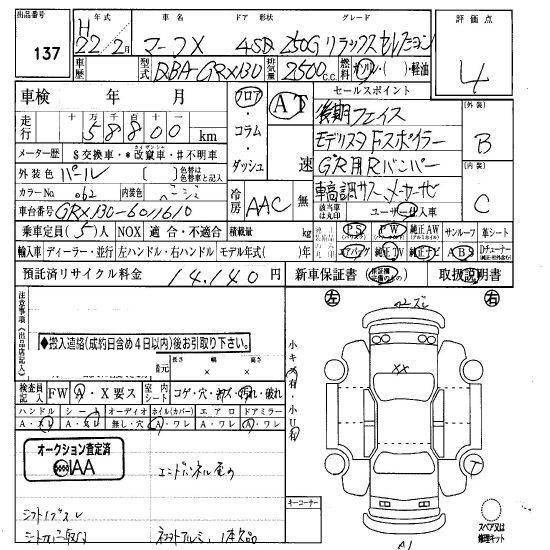 出品番号 年式 車名 ドア 形状 グレード 評価点
137 H22/2月 マークX 4SD 250G リラックスセレクション 4
車歴 型式 DBA-GRX130 排気量 2500c.c. 燃料 ガソリン・( )・軽油
車検 年 月 フロア・コラム・ダッシュ AT 速
セールスポイント
走行 十万 万 千 百 十 一 58800 km
後期フェイス
モデリスタFスポイラー
G'R用Rバンパー
車高調サス メーカーナビ
メーター歴 $交換車・*改竄車・#不明車
外装 B
内装 C
外装色 パール 色替は色替車名と記入
カラーNo. 062 内装色 ベージュ
冷房 AAC 無
該当車は丸印 ユーザー・仕入車
車台番号 GRX130-6011610
乗車定員 (5)人 NOX 適合・不適合 積載量 kg
PS PW 純正AW サンルーフ 革シート
輸入車 ディーラー・並行 左ハンドル・右ハンドル モデル年式( )年
エアバッグ 純正TV 純正ナビ ABS Dチューナー
預託済リサイクル料金 14,140円 新車保証書 取扱説明書
左 右
注意事項(出品店記入)
◆搬入遠絡(成約日含め4日以内)後お引取り下さい。
長さ 幅 高さ
小キズ有 小U有
XX
検査員記入 FW A・X要ス 室内シート コゲ・穴・キズ・汚れ・破れ
ハンドル シート オーディオ ホイル(カバー) エアロ ドアミラー
A・スレ A・スレ 無し・穴 A・ワレ A・ワレ A・ワレ
オークション査定済
IAA
エンドパネル
シフトノブスレ
1本欠品
キーコーナー
A1
スペア又は修理キット